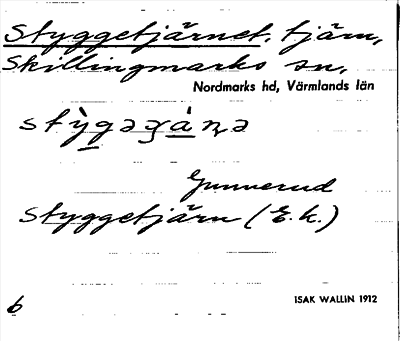 Styggetjärnet, tjärn,
Skillingmarks sn,
Nordmarks hd, Värmlands län
Gunnerud
Styggetjärn (E.k.)
ISAK WALLIN 1912
b